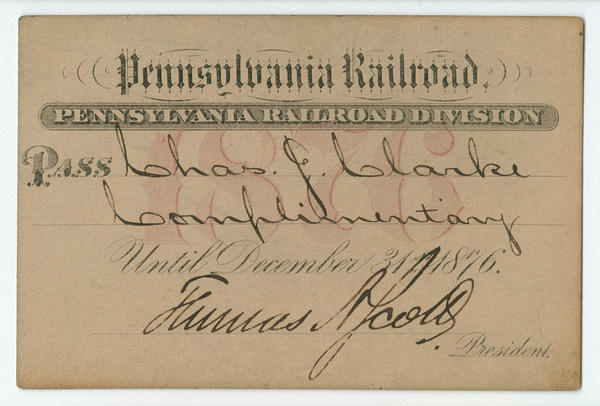 Pennsylvania Railroad.
PENNSYLVANIA RAILROAD DIVISION
1876
PASS Chas. J. Clarke
Complimentary
Until December 31st 1876.
Thomas A Scott
President.